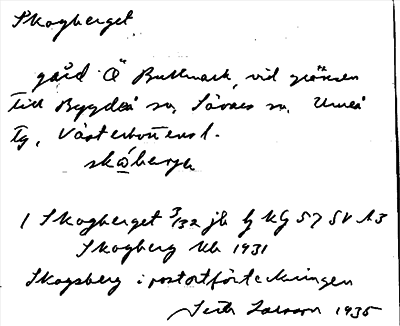 Skogberget
gård å Bullmark, vid gränsen
till Bygdeå sn, Sävars sn, Umeå
tg, Västerbottens l.
skå̀bergh
/ Skogberget 3/32 jb kg 57 SV A3
Skogberg Kb 1931
Skogsberg i postortförteckningen
Seth Larsson 1935